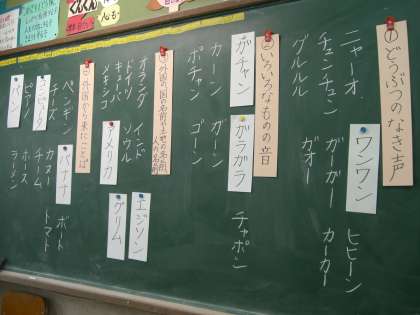 ①どうぶつのなき声
ワンワン
ニャーオ
チュンチュン
グルルル
ガーガー
ガオー
ヒヒーン
カーカー
②いろいろなものの音
ガチャン
ガラガラ
カーン
ポチャン
ガーン
ゴーン
チャポン
③外国の国の名前や土地の名前、人の名前
アメリカ
エジソン
グリム
オランダ
ドイツ
キューバ
メキシコ
インド
ソウル
④外国から来たことば
パン
コーヒー
バナナ
ペンギン
チーズ
ピアノ
パン
カヌー
チーム
ホース
ラーメン
ボート
トマト